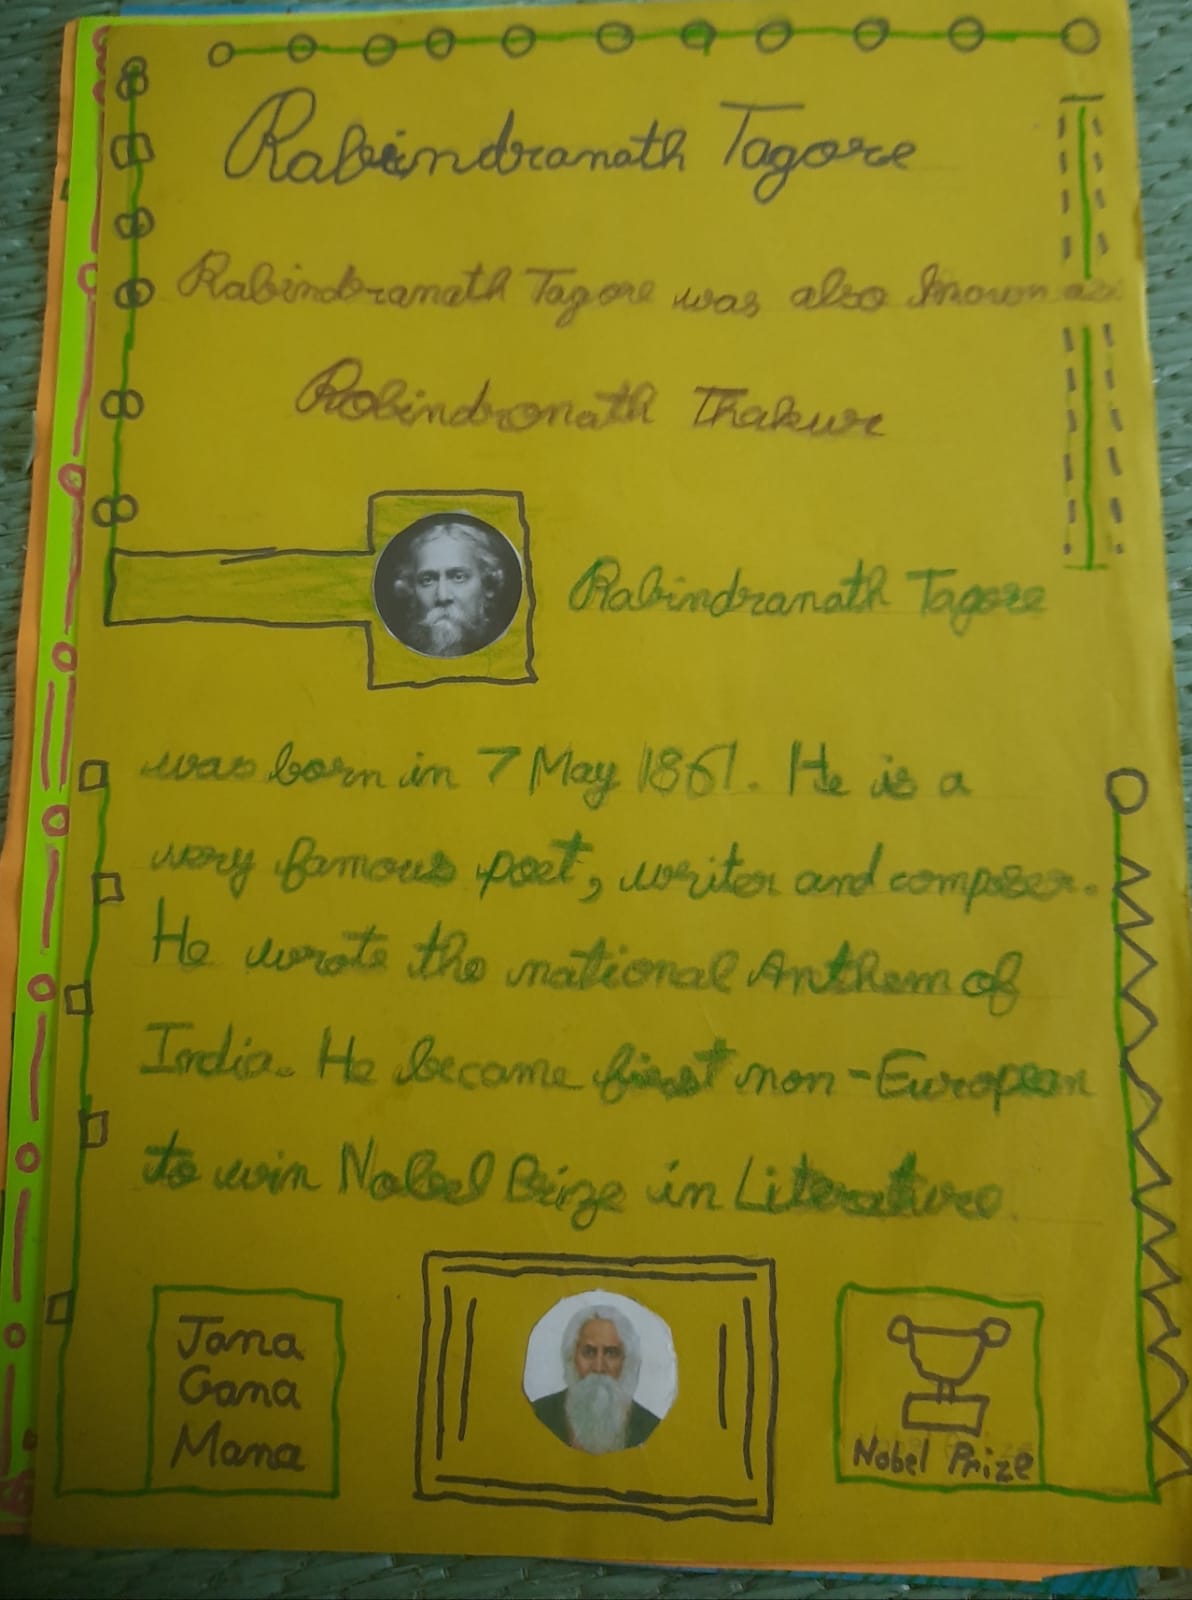 Rabindranath Tagore
Rabindranath Tagore was also known as
Robindronath Thakur
Rabindranath Tagore
was born in 7 May 1861. He is a
very famous poet, writer and composer.
He wrote the national Anthem of
India. He became first non-European
to win Nobel Prize in Literature
Jana
Gana
Mana
Nobel Prize